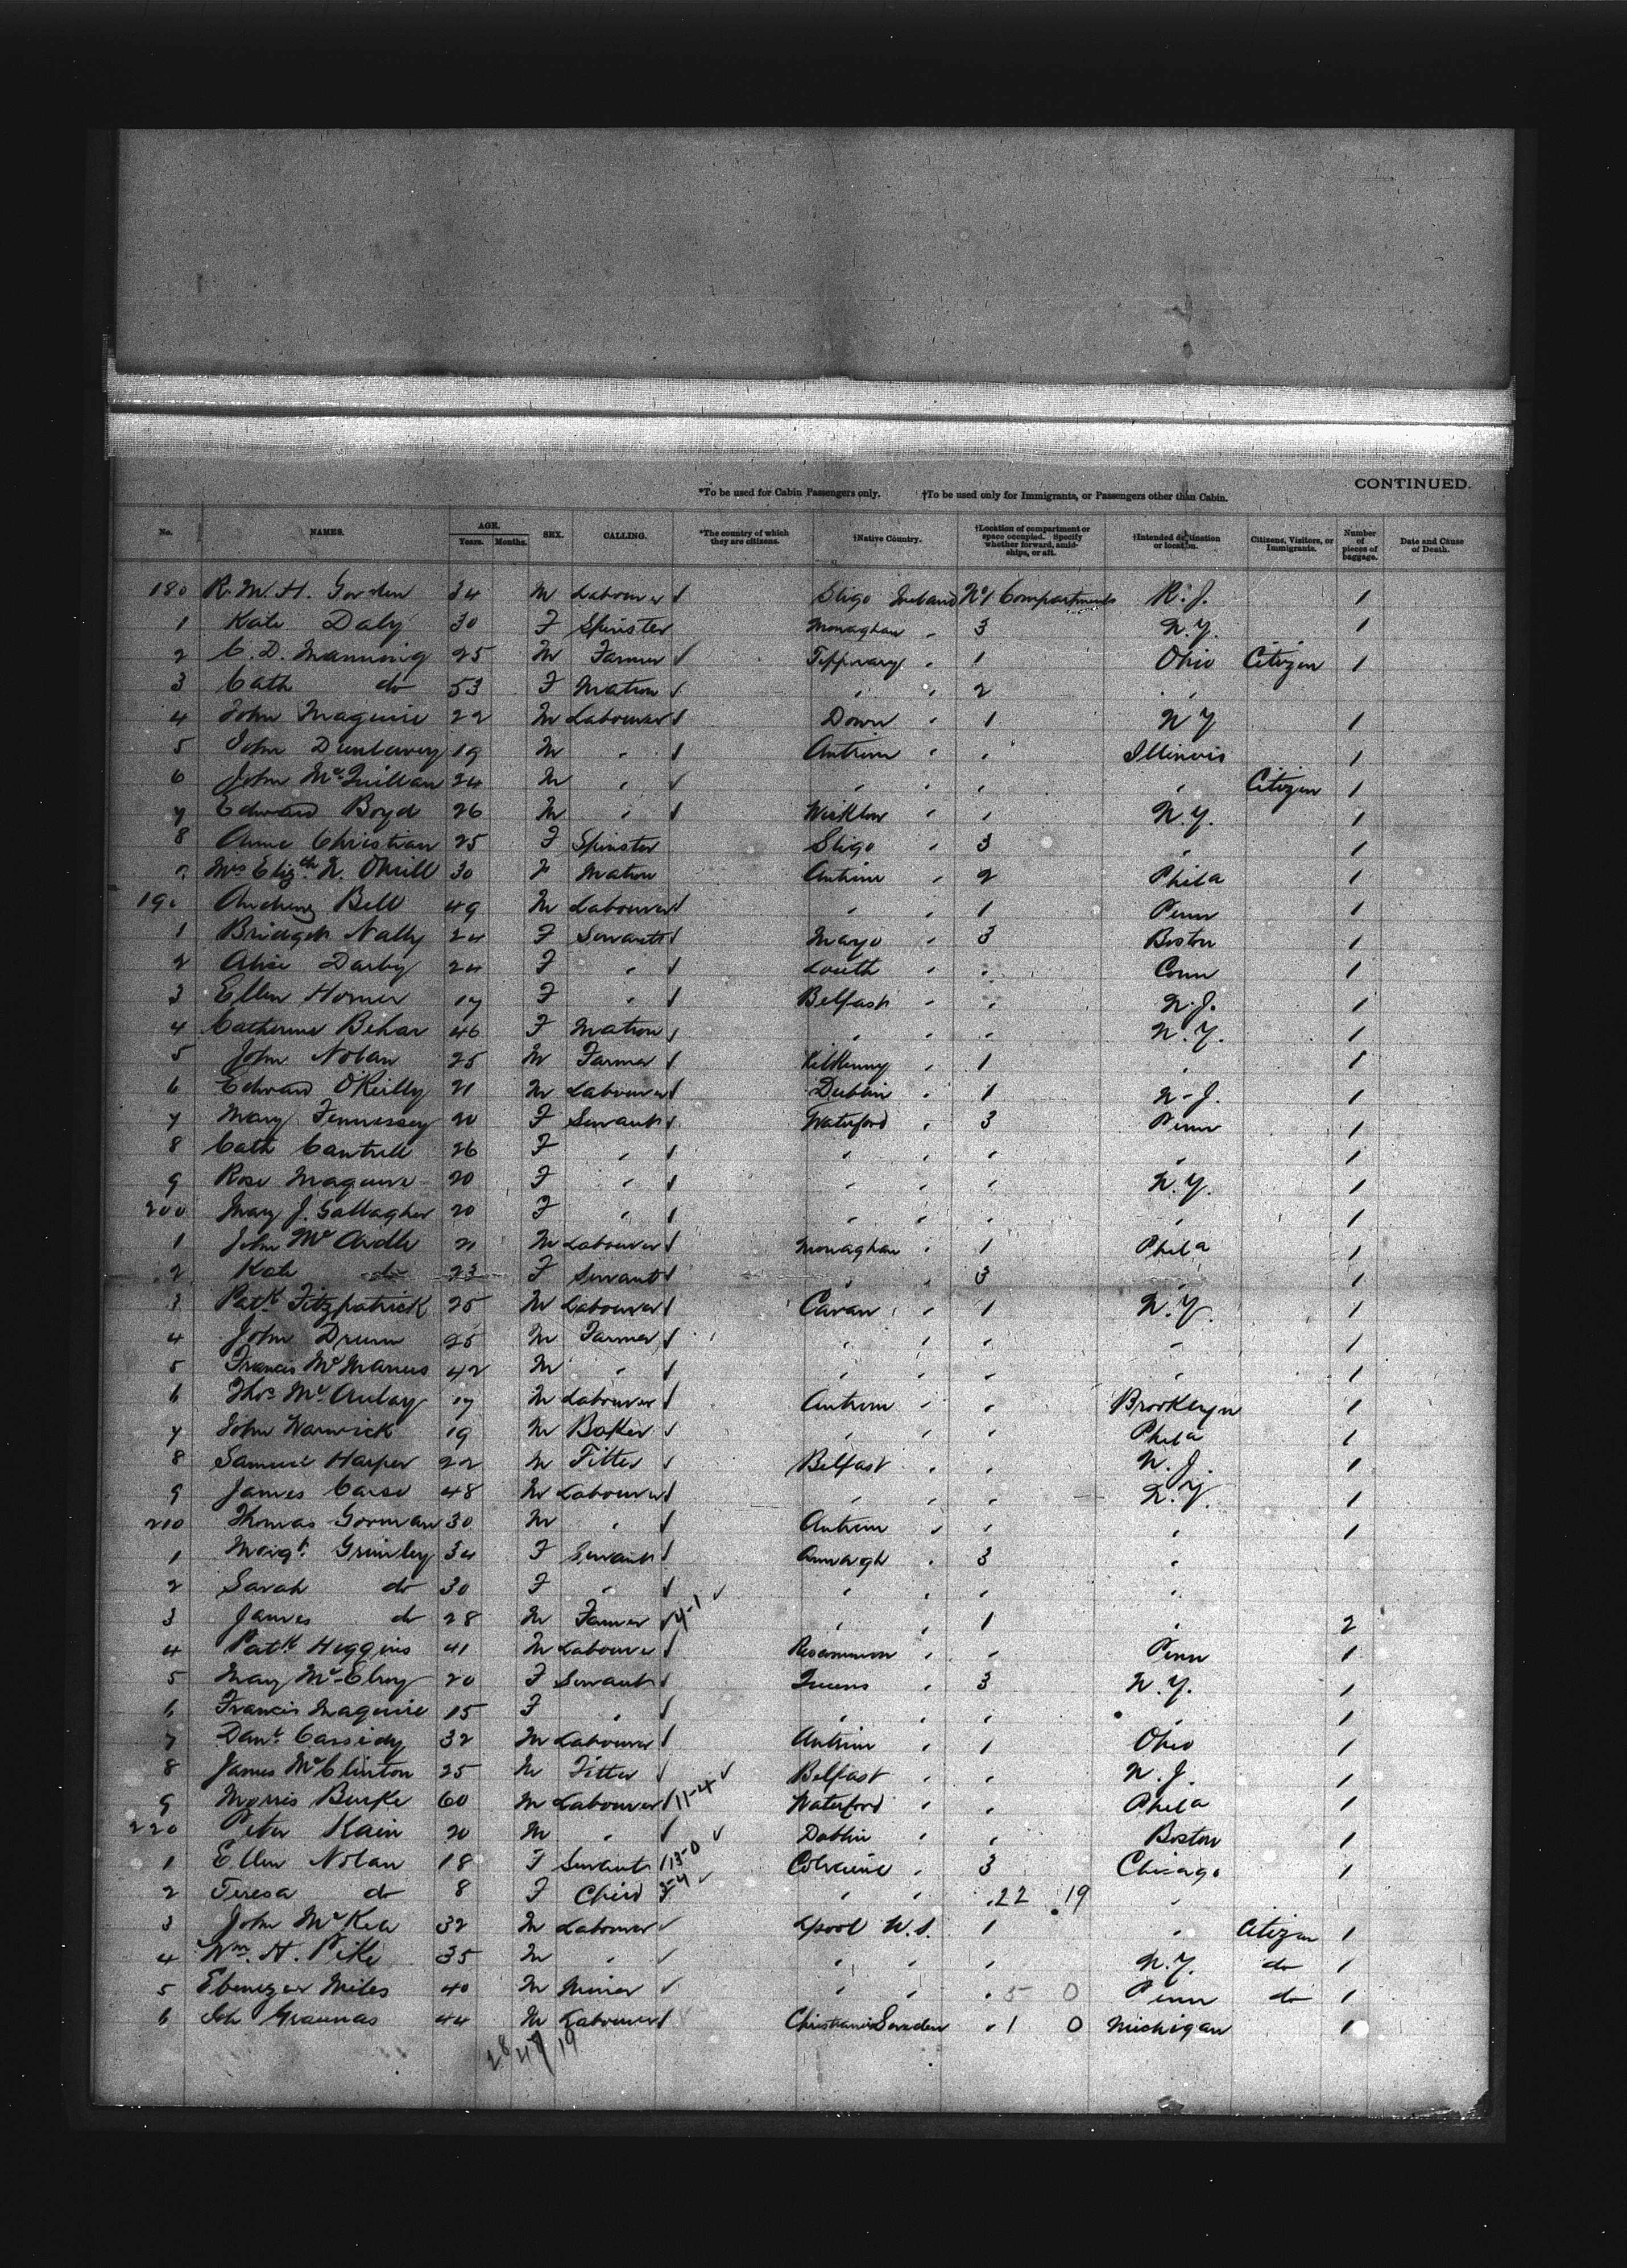 CONTINUED.
*To be used for Cabin Passengers only. †To be used only for Immigrants, or Passengers other than Cabin.
No. NAMES. AGE. Years. Months. SEX. CALLING. *The country of which they are citizens. †Native Country. †Location of compartment or space occupied. Specify whether forward, amidships, or aft. †Intended destination or location. Citizens, Visitors, or Immigrants. Number of pieces of baggage. Date and Cause of Death.
180 R. M. H. Gorden 34 M Labourer Sligo Ireland No 1 Compartments R. J. 1
1 Kate Daly 30 F Spinster Monaghan " 3 N.Y. 1
2 C. D. Manning 25 M Farmer Tipperary " 1 Ohio Citizen 1
3 Cath do 53 F Matron " " 2 "
4 John Maguire 22 M Labourer Down " 1 N Y 1
5 John Dunlavey 19 M " Antrim " " Illinois 1
6 John McQuillan 24 M " " " " " Citizen 1
7 Edward Boyd 26 M " Wicklow " " N.Y. 1
8 Anne Christian 25 F Spinster Sligo " 3 " 1
9 Mrs Elizth N. ONeill 30 F Matron Antrim " 2 Phila 1
190 Andrew Bell 49 M Labourer " " 1 Penn 1
1 Bridget Nally 24 F Servant Mayo " 3 Boston 1
2 Alice Darby 24 F " Louth " " Conn 1
3 Ellen Horner 17 F " Belfast " " N.J. 1
4 Catherine Behan 46 F Matron " " " N.Y. 1
5 John Nolan 25 M Farmer Kilkenny " 1 " 1
6 Edward O'Reilly 21 M Labourer Dublin " 1 N-J. 1
7 Mary Fennessey 20 F Servant Waterford " 3 Penn 1
8 Cath Cantrell 26 F " " " " " 1
9 Rose Maguire 20 F " " " " N.Y. 1
200 Mary J. Gallagher 20 F " " " " " 1
1 John McArdle 21 M Labourer Monaghan " 1 Phila 1
2 Kate do 23 F Servant " " 3 " 1
3 Patk Fitzpatrick 25 M Labourer Cavan " 1 N.Y. 1
4 John Drum 25 M Farmer " " " " 1
5 Francis McManus 42 M " " " " " 1
6 Thos McAulay 17 M Labourer Antrim " " Brooklyn 1
7 John Warwick 19 M Baker " " " Phila 1
8 Samuel Harper 22 M Fitter Belfast " " N.J. 1
9 James Carse 48 M Labourer " " " N.Y. 1
210 Thomas Gorman 30 M " Antrim " " " 1
1 Margt Grimley 34 F Servant Armagh " 3 "
2 Sarah do 30 F " " " " "
3 James do 28 M Farmer 4-1 " " 1 " 2
4 Patk Higgins 41 M Labourer Roscommon " " Penn 1
5 Mary McElroy 20 F Servant Queens " 3 N.Y. 1
6 Francis Maguire 15 F " " " " " 1
7 Danl Cassidy 32 M Labourer Antrim " 1 Ohio 1
8 James McClinton 25 M Fitter Belfast " " N.J. 1
9 Morris Burke 60 M Labourer 11-4 Waterford " " Phila 1
220 Peter Kain 20 M " Dublin " " Boston 1
1 Ellen Nolan 18 F Servant 13-0 Colraine " 3 Chicago 1
2 Teresa do 8 F Child 3-4 " " " 22 19 "
3 John McKee 32 M Labourer Lpool U.S. 1 " Citizen 1
4 Wm. H. Pike 35 M " " " " N.Y. do 1
5 Ebenezer Miles 40 M Miner " " " 5 0 Penn do 1
6 Joh Graunas 44 M Labourer Christiania Sweden " 1 0 Michigan 1
28 47 19